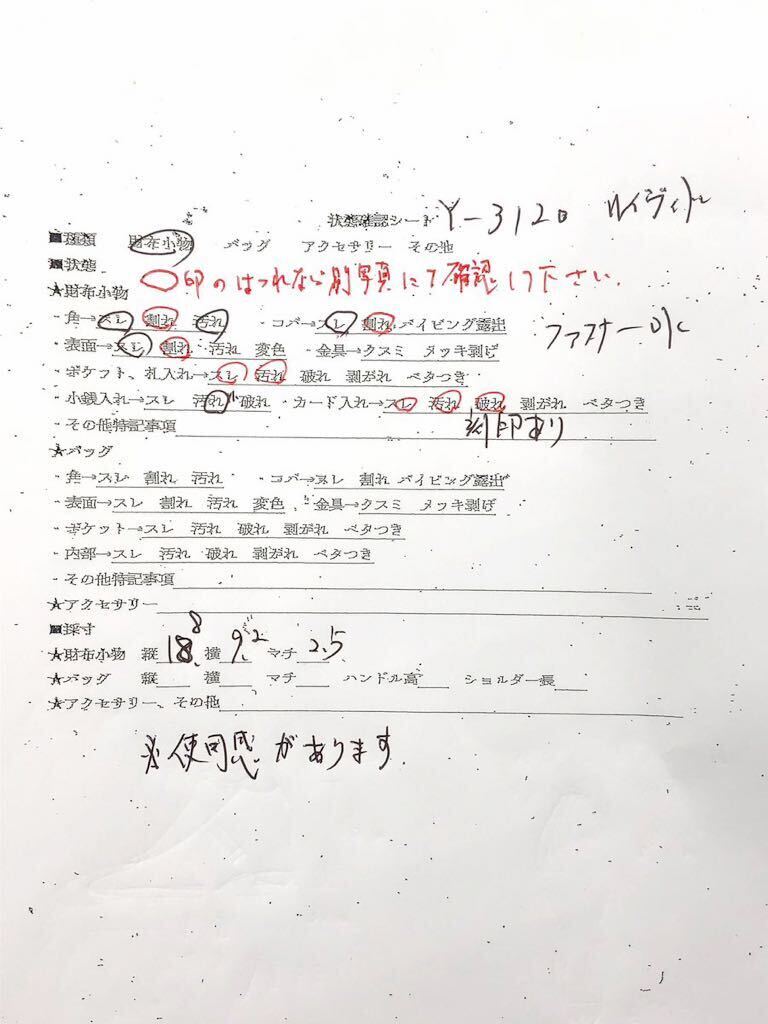 状態確認シート Y-3120 ルイヴィトン
■種類 財布小物 バッグ アクセサリー その他
■状態
○印のはつれなら別写真にて確認して下さい.
★財布小物
・角→スレ 割れ 汚れ ・コバ→スレ 割れ パイピング露出
ファスナーOK
・表面→スレ 割れ 汚れ 変色 ・金具→クスミ メッキ剥げ
・ポケット、札入れ→スレ 汚れ 破れ 剥がれ ベタつき
・小銭入れ→スレ 汚れ小 破れ ・カード入れ→スレ 汚れ 破れ 剥がれ ベタつき
・その他特記事項 刻印あり
★バッグ
・角→スレ 割れ 汚れ ・コバ→スレ 割れ パイピング露出
・表面→スレ 割れ 汚れ 変色 ・金具→クスミ メッキ剥げ
・ポケット→スレ 汚れ 破れ 剥がれ ベタつき
・内部→スレ 汚れ 破れ 剥がれ ベタつき
・その他特記事項
★アクセサリー
■採寸
★財布小物 縦 18.8 横 9.2 マチ 2.5
★バッグ 縦 横 マチ ハンドル高 ショルダー長
★アクセサリー、その他
※使用感があります.